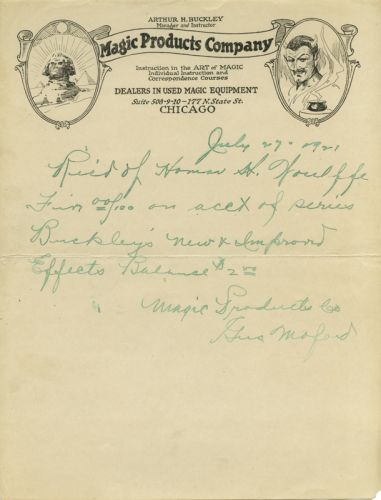 ARTHUR H. BUCKLEY
Manager and Instructor
Magic Products Company
Instruction in the ART of MAGIC
Individual Instruction and
Correspondence Courses
DEALERS IN USED MAGIC EQUIPMENT
Suite 508-9-10 - 177 N. State St.
CHICAGO
July 27- 1921
Rec'd of Homer H.
Five 00/100 on acct of series
Buckley's New & Improvd
Effects Balance $2 00
Magic Products Co
Gus